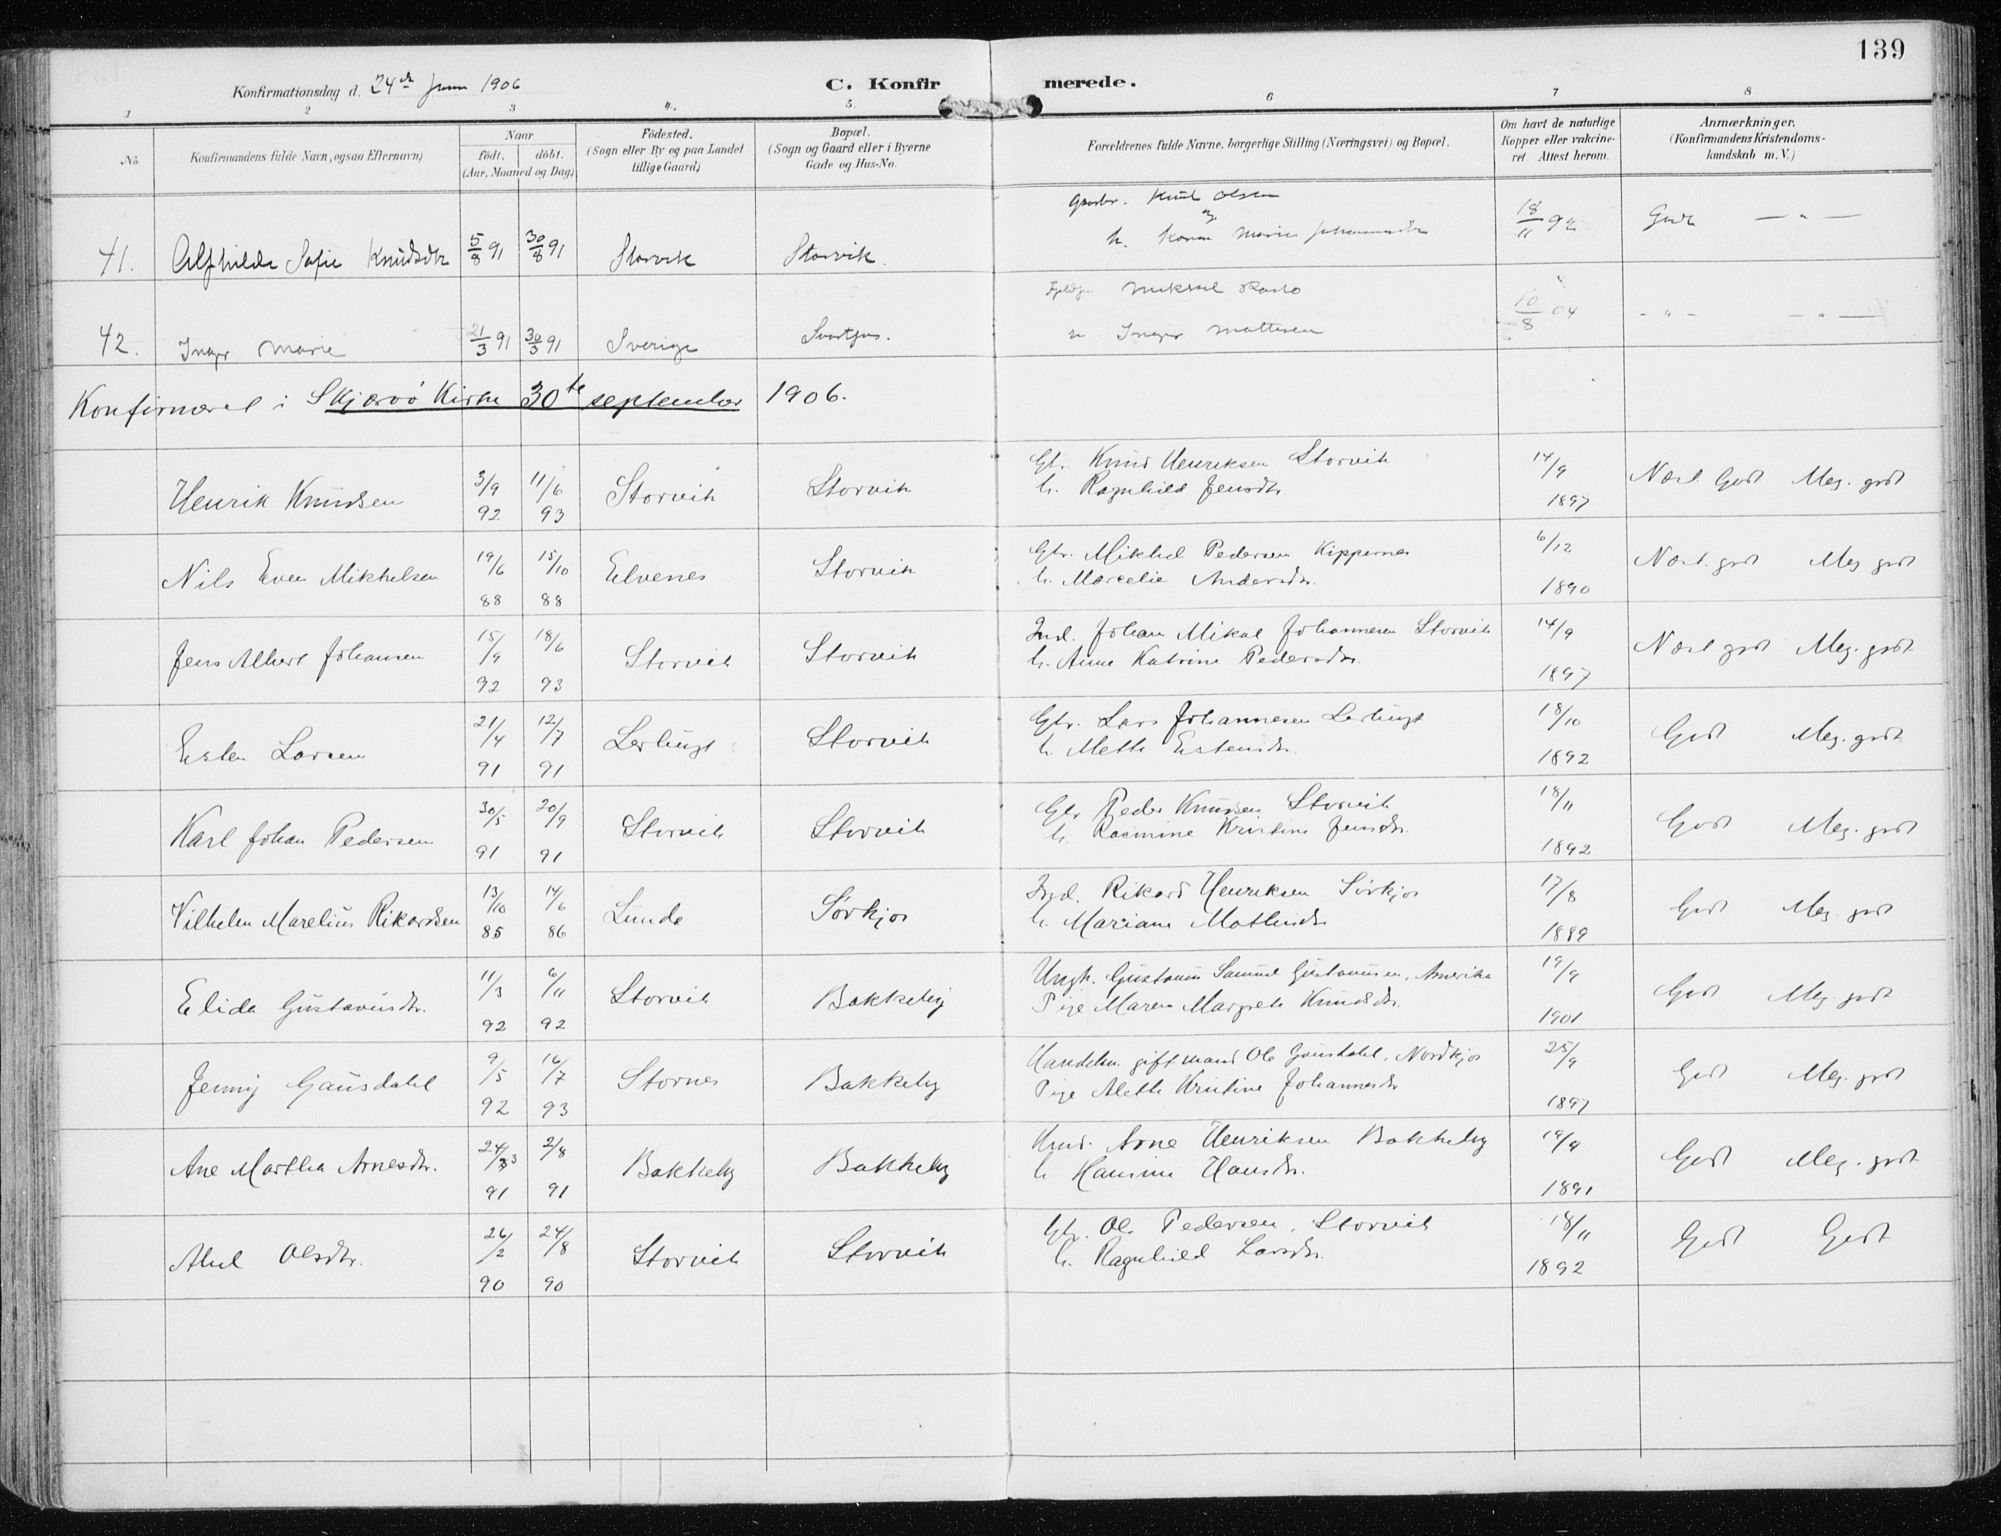 139
Konfirmationsdag d. 24de Juni 1906
C. Konfirmerede.
1 2 3 4. 5. 6 7 8
No.
Konfirmandens fulde Navn, ogsaa Efternavn)
Naar
födt. döbt.
(Aar, Maaned og Dag)
Födested.
(Sogn eller By og paa Landet
tillige Gaard)
Bopæl.
(Sogn og Gaard eller i Byerne
Gade og Hus-No.
Forældrenes fulde Navne, borgerlige Stilling (Næringsvei) og Bopæl.
Om havt de naturlige
Kopper eller vakcine-
ret. Attest herom.
Anmærkninger.
(Konfirmandens Kristendoms-
kundskab m. V.)
Knut Olsen
og
41. Alfhilde Sofie Knudsdtr 5/8 91 30/8 91 Storvik Storvik. h. Karen Marie Johannesdtr 18/11 92 Godt — " —
42. Inger Marie 21/3 91 30/3 91 Sverige Mikkel
h Inger Mattisen 10/8 04 - " - — " —
Konfirmeret i Skjærvö Kirke 30te september 1906.
Henrik Knudsen 3/9 92 11/6 93 Storvik Storvik Gbr. Knud Henriksen Storvik 14/9 1897 Næst Godt Meg. godt
h. Ragnhild Jensdtr.
Nils Even Mikkelsen 19/6 88 15/10 88 Elvenes Storvik Gbr. Mikkel Pedersen Kippernes 6/12 1890 Næst. godt Meg godt
h. Marcelie Andersdtr.
Jens Albert Johansen 15/9 92 18/6 93 Storvik Storvik Ind. Johan Mikal Johannesen Storvik 14/9 1897 Næst godt Meg. godt
h. Anne Katrine Pedersdtr.
Esten Larsen 21/4 91 12/7 91 Lerbugt Storvik Gbr. Lars Johannesen Lerbugt 18/10 1892 Godt Meg. godt
h. Mette Estensdtr.
Karl Johan Pedersen 30/5 91 20/9 91 Storvik Storvik Gbr Peder Knudsen Storvik 18/11 1892 Godt Meg. godt
h. Rasmine Kristine Jensdtr.
Vilhelm Marelius Rikardsen 13/10 85 14/6 86 Lunde Sörkjos Ind. Rikard Henriksen Sörkjos 17/8 1889 Godt Meg. godt
h. Mariane
Elida Gustavusdtr. 11/3 92 6/11 92 Storvik Bakkeby Ungk. Gustavus Samuel Gustavusen, Amerika 19/9 1901 Godt Meg. godt
Pige Maren Margrete Knudsdtr.
Jenny Gausdahl 9/5 92 16/7 93 Stornes Bakkeby Handelsm. gift mand Ole Gausdahl, Nordkjos 25/9 1897 Godt Meg. godt
Pige Alette Kristine Johannesdtr
Ane Martha Arnesdtr. 24/3 91 2/8 91 Bakkeby Bakkeby Arne Henriksen Bakkeby 19/9 1891 Godt Meg. godt
h Hansine Hansdtr.
Abel Olsdtr. 26/2 90 24/8 90 Storvik Storvik Gbr. Ole Pedersen, Storvik 18/11 1892 Godt Godt
h. Ragnhild Larsdtr.